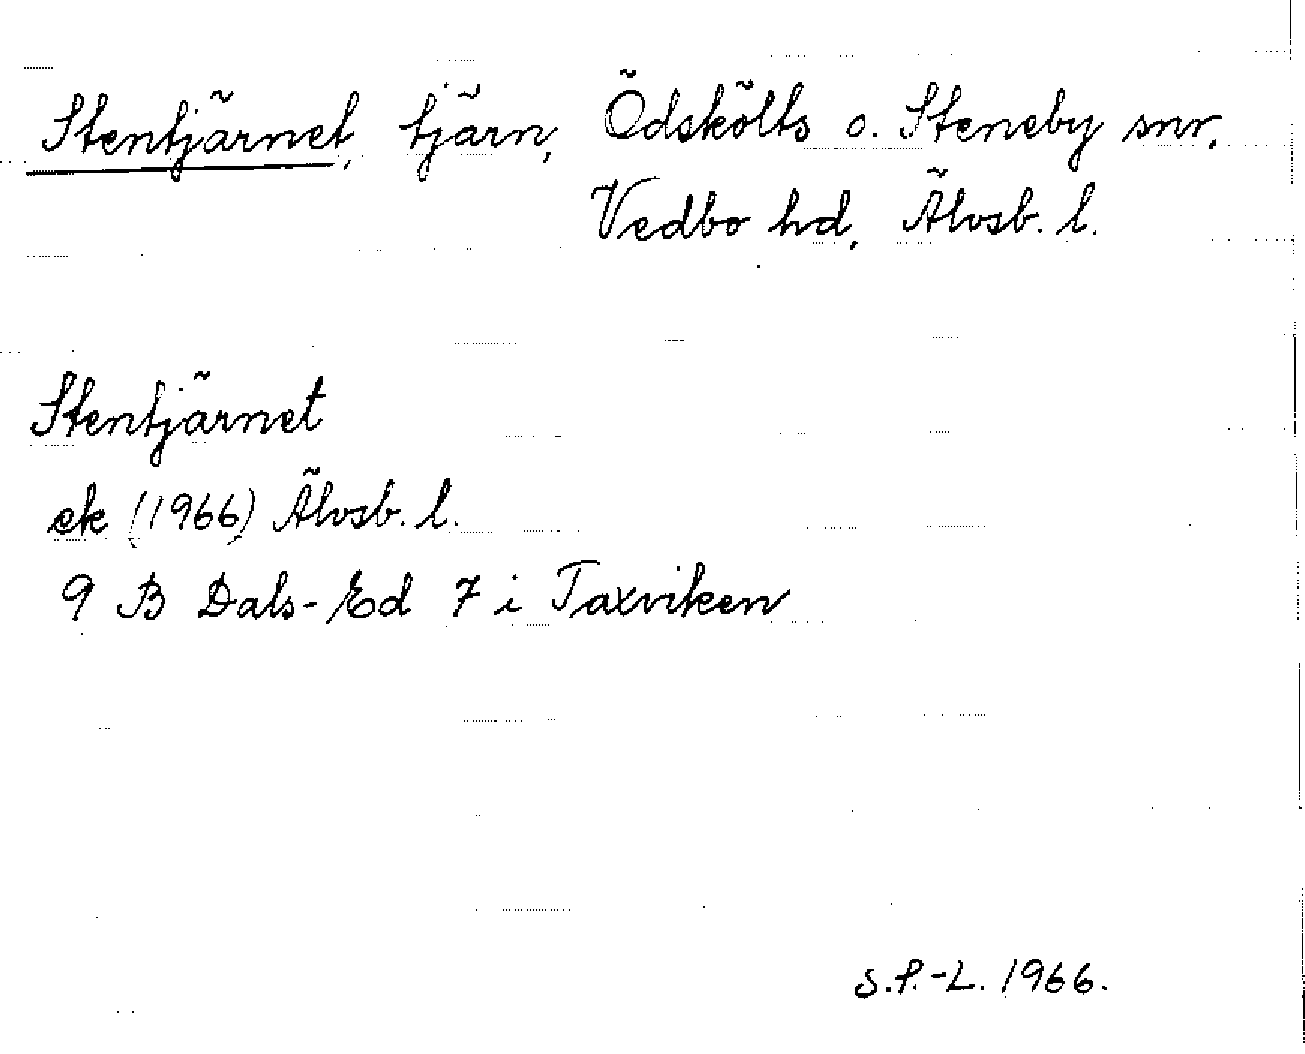 Stentjärnet, tjärn, Ödskölts o. Steneby snr,
Vedbo hd, Älvsb. l.
Stentjärnet
ek (1966) Älvsb. l.
9 B Dals-Ed 7 i Taxviken
S.P.-L. 1966.